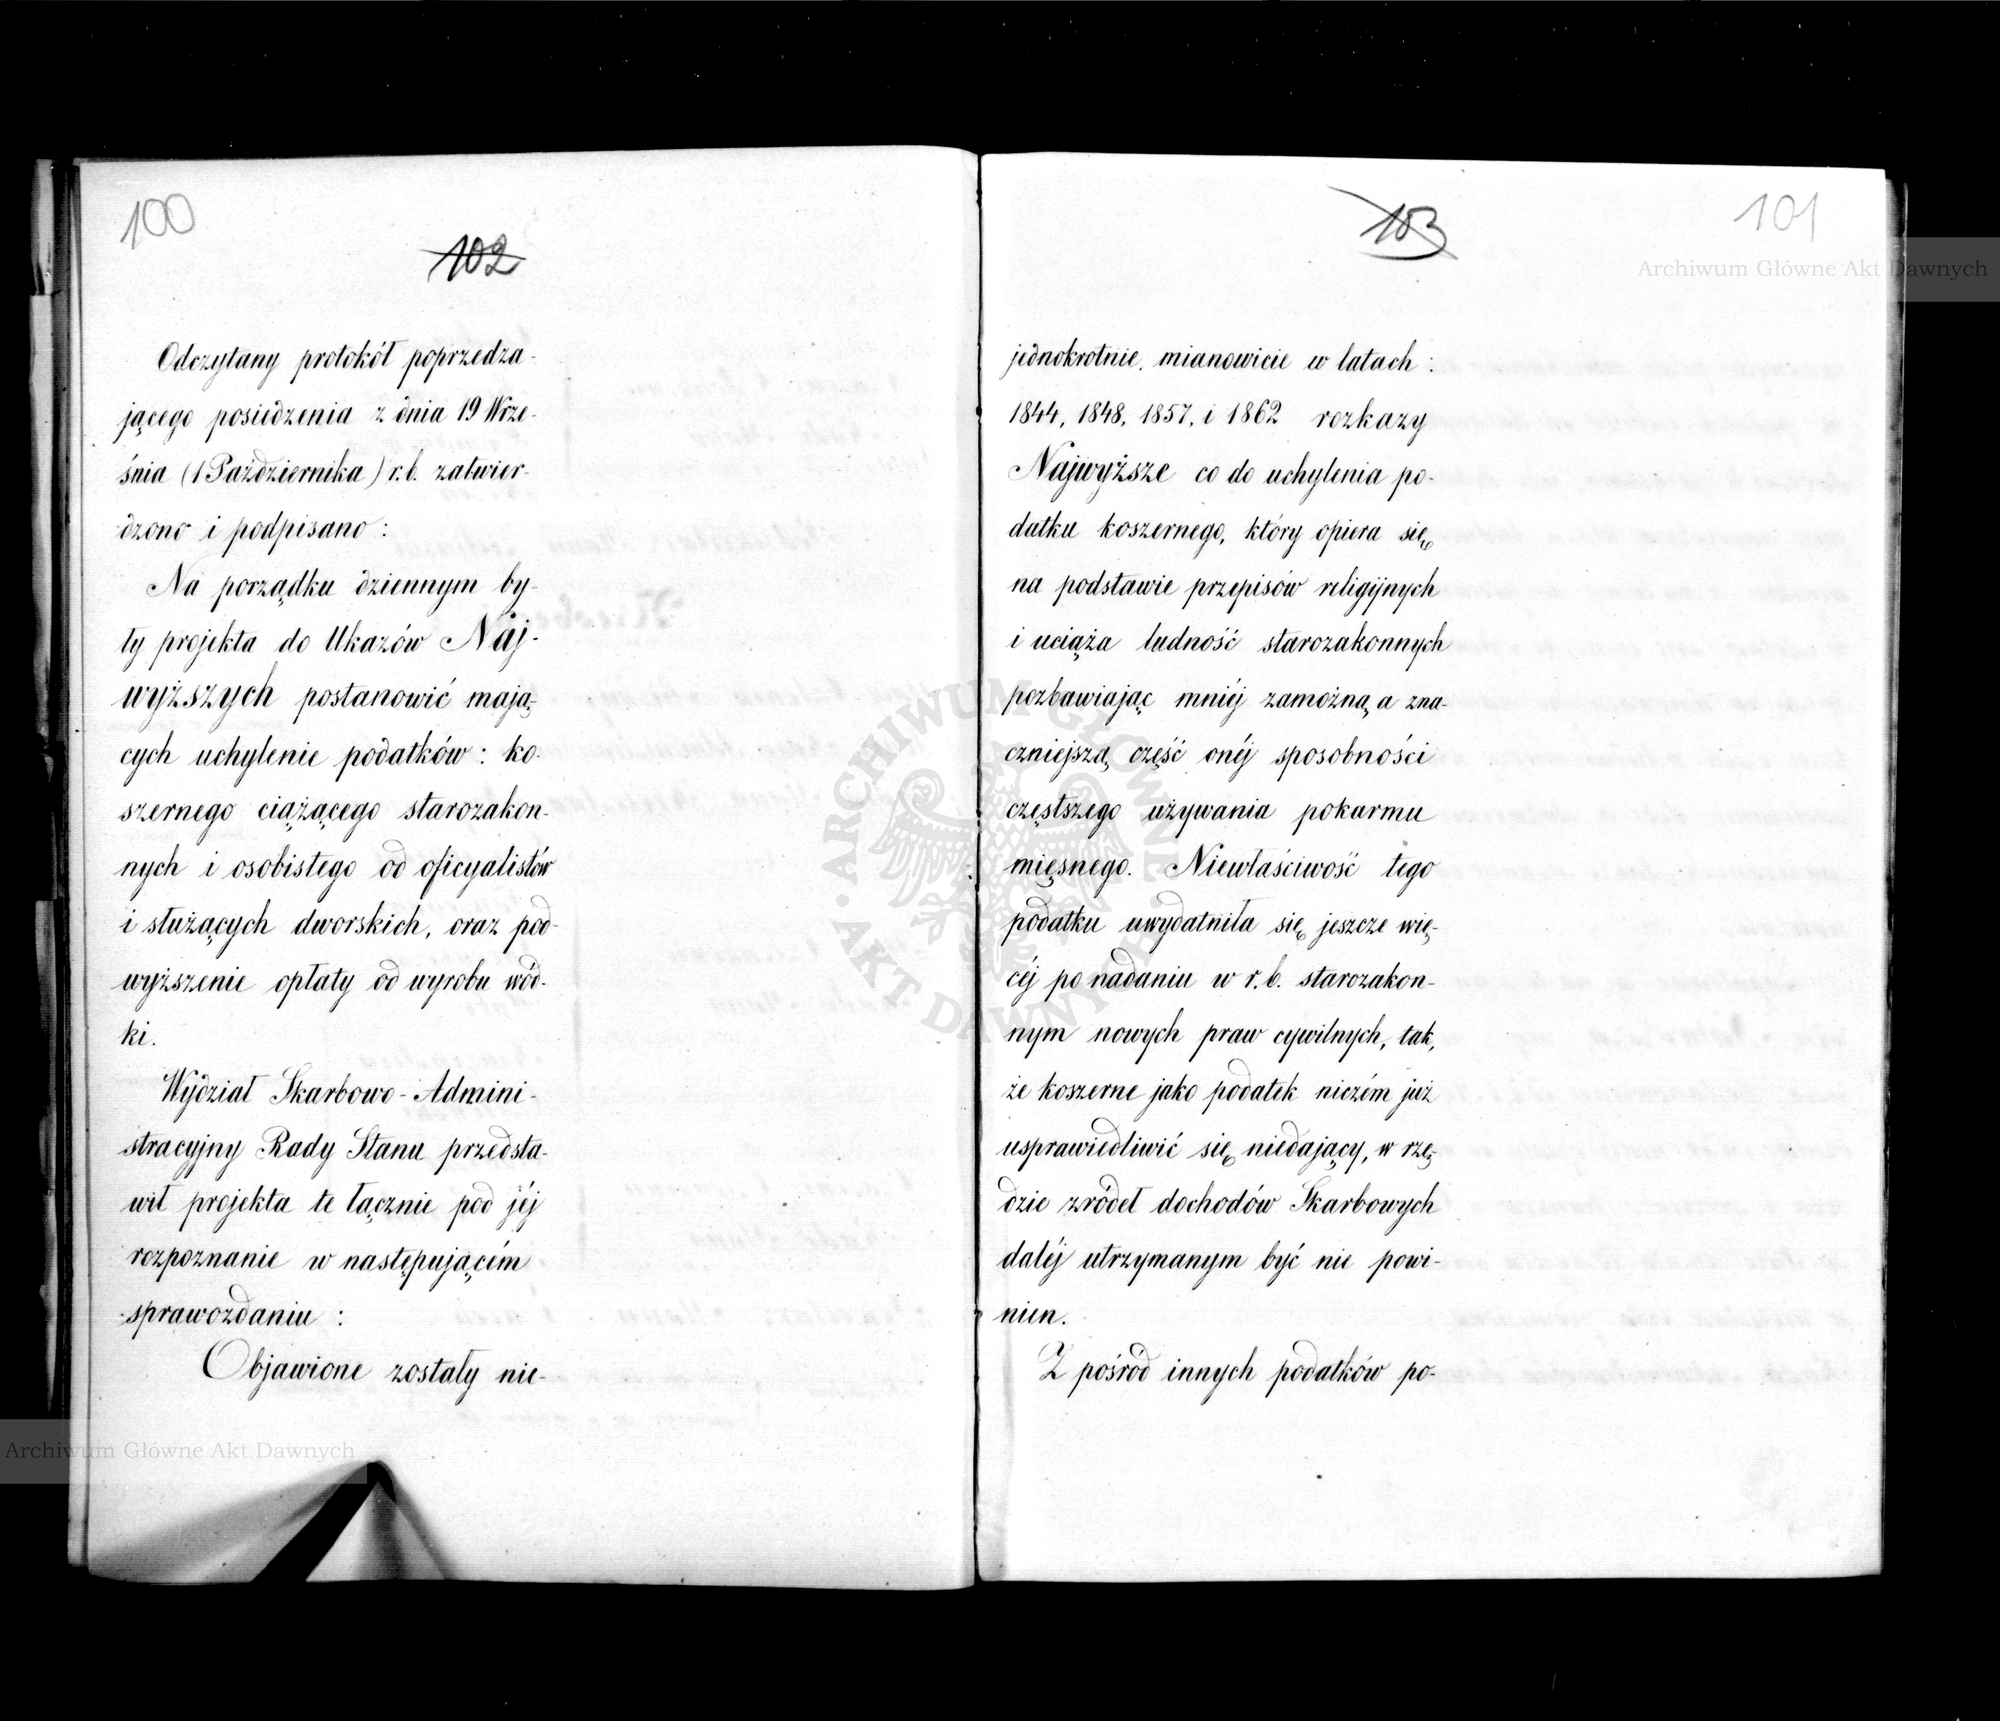 100
102
Odczytany protokół poprzedza-
jącego posiedzenia z dnia 19 Wrze-
śnia (1 Października) r.b. zatwier-
dzono i podpisano:
Na porządku dziennym by-
ły projekta do Ukazów Naj-
wyższych postanowić mają-
cych uchylenie podatków: ko-
szernego ciążącego starozakon-
nych i osobistego od oficyalistów
i służących dworskich, oraz pod-
wyższenie opłaty od wyrobu wód-
ki.
Wydział Skarbowo-Admini-
stracyjny Rady Stanu przedsta-
wił projekta te łącznie pod jéj
rozpoznanie w następującém
sprawozdaniu:
Objawione zostały nie-
103
101
jednokrotnie, mianowicie w latach:
1844, 1848, 1857, i 1862 rozkazy
Najwyższe co do uchylenia po-
datku koszernego, który opiera się
na podstawie przepisów religijnych
i uciąża ludność starozakonnych
pozbawiając mniéj zamożną a zna-
czniejszą część onéj sposobności
częstszego używania pokarmu
mięsnego. Niewłaściwość tego
podatku uwydatniła się jeszcze wię-
céj po nadaniu w r.b. starozakon-
nym nowych praw cywilnych, tak,
że koszerne jako podatek niczém już
usprawiedliwić się niedający, w rzę-
dzie zródeł dochodów Skarbowych
daléj utrzymanym być nie powi-
nien.
Z pośród innych podatków po-
Archiwum Główne Akt Dawnych
Archiwum Główne Akt Dawnych
ARCHIWUM GŁÓWNE AKT DAWNYCH